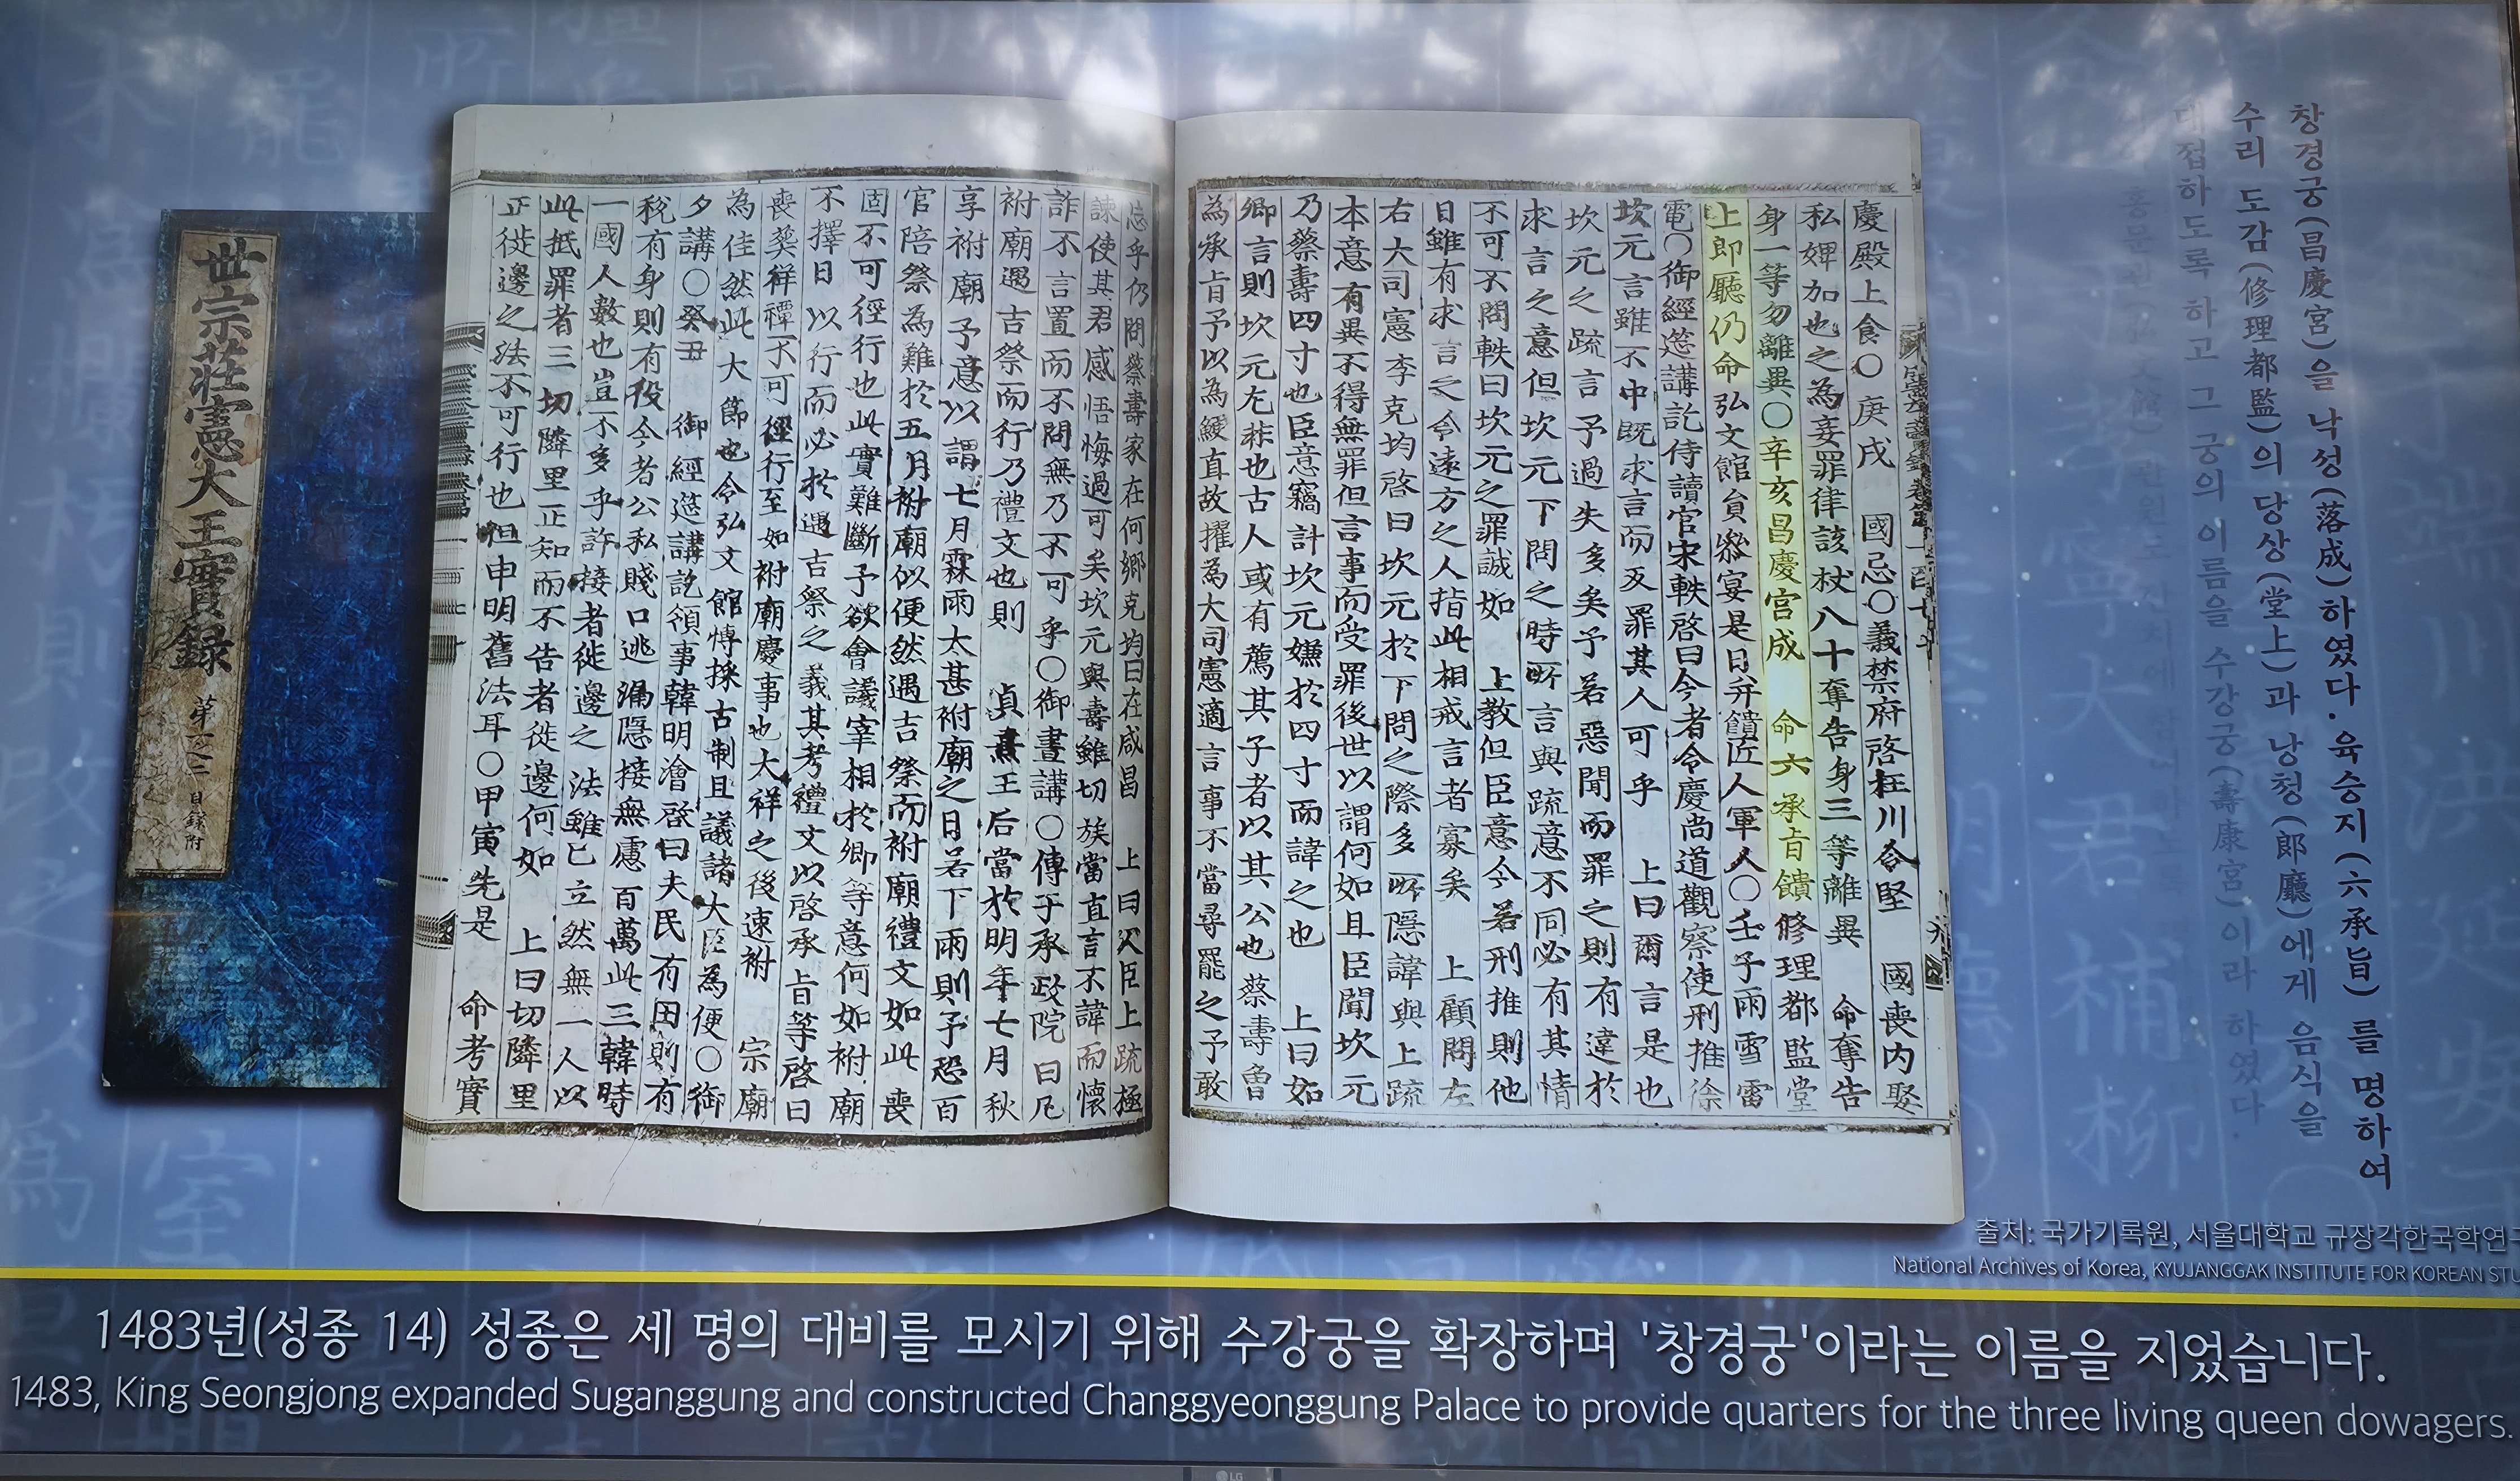 世宗莊憲大王實録
目錄附
慶殿上食〇庚戌 國忌〇義禁府啓枉川令堅 國喪內娶
私婢加也之為妾罪律該杖八十奪告身三等離異 命奪告
身一等勿離異〇辛亥昌慶宮成 命六承旨饋修理都監堂
上郎廳仍命弘文館員叅宴是日幷饋匠人軍人〇壬子雨雪雷
電〇御經筵講訖侍讀官宋軼啓曰今者令慶尚道觀察使刑推徐
坎元言雖不中既求言而反罪其人可乎 上曰爾言是也
坎元之疏言予過失多矣予若惡聞而罪之則有違於
求言之意但坎元下問之時所言與疏意不同必有其情
不可不問軼曰坎元之罪誠如 上敎但臣意今若刑推則他
日雖有求言之令遠方之人指此相戒言者寡矣 上顧問左
右大司憲李克均啓曰坎元於下問之際多所隱諱與上疏
本意有異不得無罪但言事而受罪後世以謂何如且臣聞坎元
乃蔡壽四寸也臣意竊計坎元嫌於四寸而諱之也 上曰如
卿言則坎元尤非也古人或有薦其子者以其公也蔡壽魯
為承旨予以為鯁直故擢為大司憲適言事不當尋罷之予敢
忘乎仍問蔡壽家在何鄕克均曰在咸昌 上曰人臣上疏極
諫使其君感悟悔過可矣坎元與壽雖切族當直言不諱而懷
詐不言置而不問無乃不可乎〇御晝講〇傳于承政院曰凡
祔廟遇吉祭而行乃禮文也則 貞熹王后當於明年七月秋
享祔廟予意以謂七月霖雨太甚祔廟之日若下雨則予恐百
官陪祭為難於五月祔廟似便然遇吉祭而祔廟禮文如此喪
固不可徑行也此實難斷予欲會議宰相於卿等意何如祔廟
不擇日以行而必於遇吉祭之義其考禮文以啓承旨等啓曰
喪葬祥禫不可徑行至如祔廟慶事也大祥之後速祔 宗廟
為佳然此大節也令弘文館博採古制且議諸大臣為便〇御
夕講〇癸丑 御經筵講訖領事韓明澮啓曰夫民有田則有
稅有身則有役今者公私賤口逃漏隱接無慮百萬此三韓時
一國人數也豈不多乎許接者徙邊之法雖已立然無一人以
此抵罪者三切隣里正知而不告者徙邊何如 上曰切隣里
正徙邊之法不可行也但申明舊法耳〇甲寅先是 命考實
창경궁(昌慶宮)을 낙성(落成)하였다. 육승지(六承旨)를 명하여
수리 도감(修理都監)의 당상(堂上)과 낭청(郞廳)에게 음식을
대접하도록 하고 그 궁의 이름을 수강궁(壽康宮)이라 하였다.
출처: 국가기록원, 서울대학교 규장각한국학연구
National Archives of Korea, KYUJANGGAK INSTITUTE FOR KOREAN STU
1483년(성종 14) 성종은 세 명의 대비를 모시기 위해 수강궁을 확장하며 '창경궁'이라는 이름을 지었습니다.
1483, King Seongjong expanded Suganggung and constructed Changgyeonggung Palace to provide quarters for the three living queen dowagers.
LG